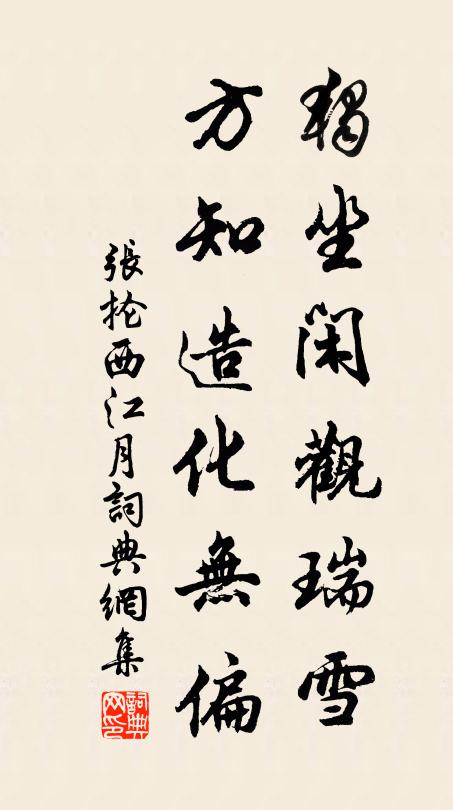 獨坐閑觀瑞雪
方知造化無偏
張掄西江月詞典網集
詞典網印